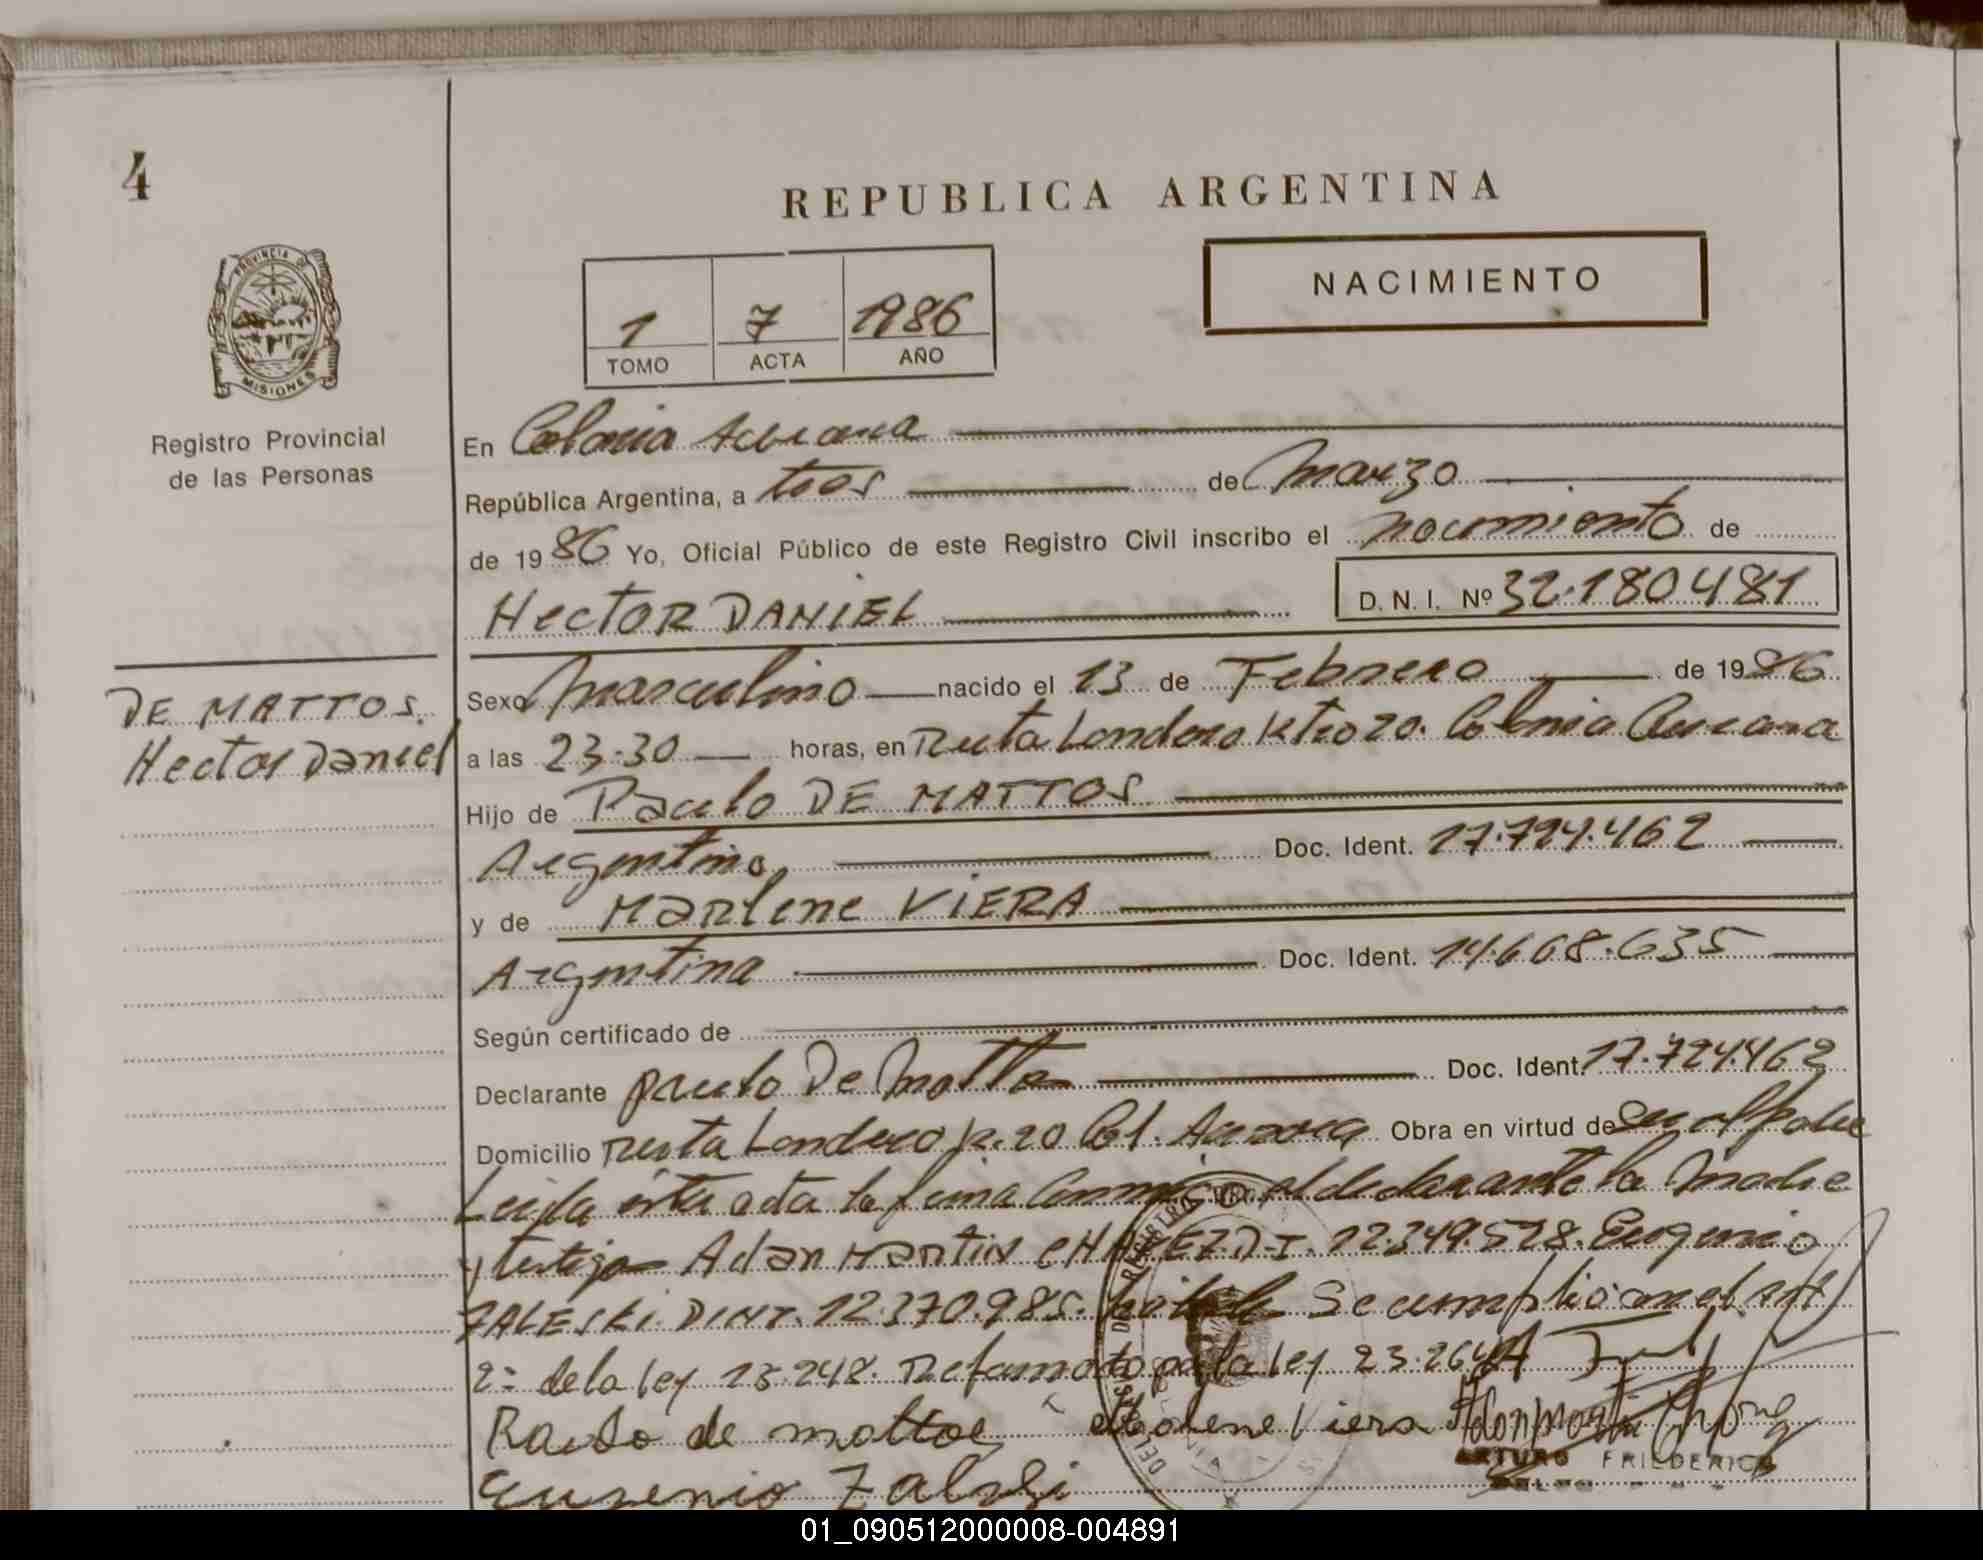 4
REPUBLICA ARGENTINA
PROVINCIA DE
MISIONES
Registro Provincial
de las Personas
1 7 1986
TOMO ACTA AÑO
NACIMIENTO
En Colonia Aurora
República Argentina, a tres de Marzo
de 1986 Yo, Oficial Público de este Registro Civil inscribo el nacimiento de
HectOR DANiEL D. N. I. Nº 32.180481
DE MATTOS.
Hector Daniel
Sexo Masculino nacido el 13 de Febrero de 1986
a las 23.30 horas, en Ruta Londero Ktro 20. Colonia Aurora
Hijo de Paulo DE MATTOS
Argentino Doc. Ident. 17.724.462
y de Marlene ViERA
Argentina Doc. Ident. 14.668.635
Según certificado de
Declarante Paulo De Mattos Doc. Ident. 17.724.462
Domicilio Ruta Londero k. 20 Col. Aurora Obra en virtud de Su
Leída esta acta la firma Conmigo el declarante la Madre
y testigos Adan Martin CHAVEZ D.I. 12.349.528. Eugenio
ZALESKi. DINI. 12.370.985. Se cumplio con el art
2º de la ley 13.248. Reformado por la ley 23.264
Paulo de mattos Marlene Viera
Eugenio
ARTURO FRIEDERICH
01_090512000008-004891